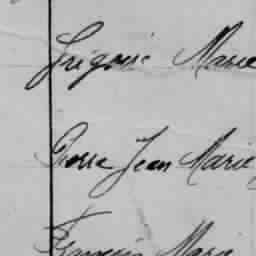 Grégoire Marie
Pierre Jean Marie
François Marie